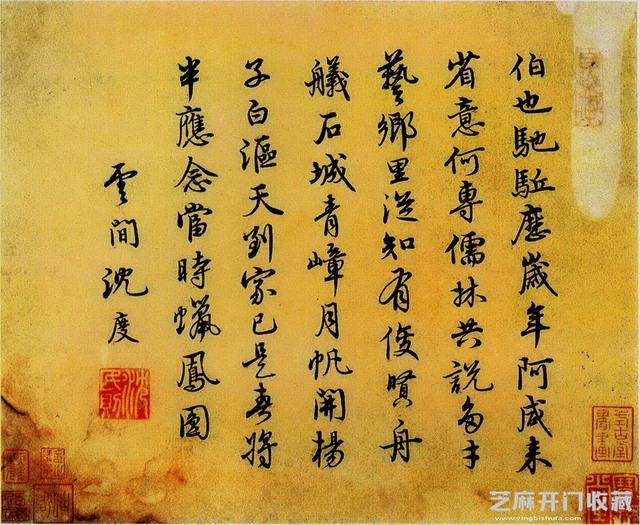 伯也馳駈歷歲年阿咸来
省意何專儒林共說多才
藝鄉里從知有俊賢舟
艤石城青嶂月帆開楊
子白漚天到家已是春將
半應念當時蠟鳳圓
雲間沈度
沈民則
芝麻开门收藏
www.yingbishufa.com